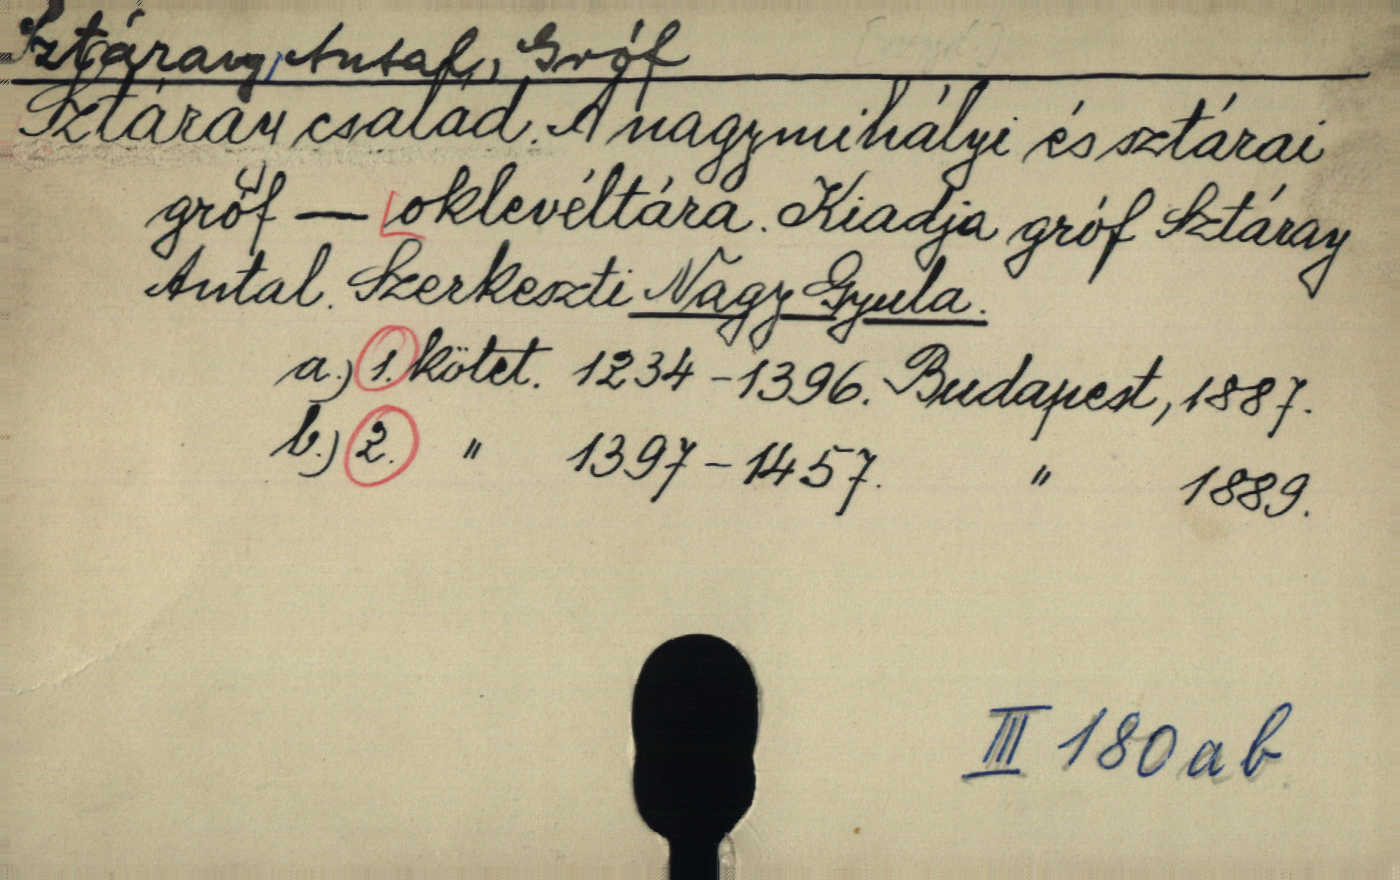 Sztáray, Antal, Gróf
Sztáray család. A nagymihályi és sztárai
gróf — oklevéltára. Kiadja gróf Sztáray
Antal. Szerkeszti Nagy Gyula.
a.) 1. kötet. 1234-1396. Budapest, 1887.
b.) 2. " 1397-1457. " 1889.
III 180 ab